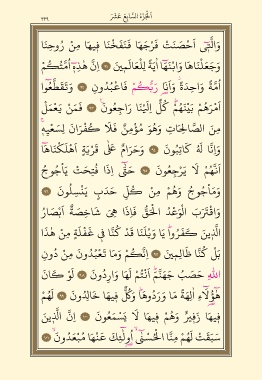 اَلْجُزْءُ السَّابِعَ عَشَرَ
٣٢٩
وَالَّت۪ٓي اَحْصَنَتْ فَرْجَهَا فَنَفَخْنَا ف۪يهَا مِنْ رُوحِنَا
وَجَعَلْنَاهَا وَابْنَهَٓا اٰيَةً لِلْعَالَم۪ينَ ﴿٩١﴾ اِنَّ هٰذِه۪ٓ اُمَّتُكُمْ
اُمَّةً وَاحِدَةً وَاَنَا۬ رَبُّكُمْ فَاعْبُدُونِ ﴿٩٢﴾ وَتَقَطَّعُٓوا
اَمْرَهُمْ بَيْنَهُمْۜ كُلٌّ اِلَيْنَا رَاجِعُونَ۟ ﴿٩٣﴾ فَمَنْ يَعْمَلْ
مِنَ الصَّالِحَاتِ وَهُوَ مُؤْمِنٌ فَلَا كُفْرَانَ لِسَعْيِه۪ۚ
وَاِنَّا لَهُ كَاتِبُونَ ﴿٩٤﴾ وَحَرَامٌ عَلٰى قَرْيَةٍ اَهْلَكْنَاهَٓا
اَنَّهُمْ لَا يَرْجِعُونَ ﴿٩٥﴾ حَتّٰٓى اِذَا فُتِحَتْ يَأْجُوجُ
وَمَأْجُوجُ وَهُمْ مِنْ كُلِّ حَدَبٍ يَنْسِلُونَ ﴿٩٦﴾
وَاقْتَرَبَ الْوَعْدُ الْحَقُّ فَاِذَا هِيَ شَاخِصَةٌ اَبْصَارُ
الَّذ۪ينَ كَفَرُواۜ يَا وَيْلَنَا قَدْ كُنَّا ف۪ي غَفْلَةٍ مِنْ هٰذَا
بَلْ كُنَّا ظَالِم۪ينَ ﴿٩٧﴾ اِنَّكُمْ وَمَا تَعْبُدُونَ مِنْ دُونِ
اللّٰهِ حَصَبُ جَهَنَّمَۜ اَنْتُمْ لَهَا وَارِدُونَ ﴿٩٨﴾ لَوْ كَانَ
هٰٓؤُ۬لَٓاءِ اٰلِهَةً مَا وَرَدُوهَاۜ وَكُلٌّ ف۪يهَا خَالِدُونَ ﴿٩٩﴾ لَهُمْ
ف۪يهَا زَف۪يرٌ وَهُمْ ف۪يهَا لَا يَسْمَعُونَ ﴿١٠٠﴾ اِنَّ الَّذ۪ينَ
سَبَقَتْ لَهُمْ مِنَّا الْحُسْنٰٓىۙ اُو۬لٰٓئِكَ عَنْهَا مُبْعَدُونَۙ ﴿١٠١﴾